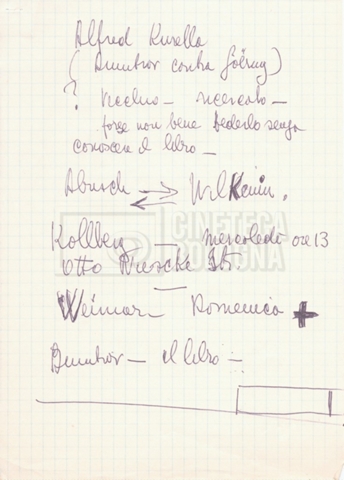 Alfred Kurella
(Dimitrov contra Göring)
? Vecchio – ricercato –
forse non bene vederlo senza
conoscere il libro –
Abusch
Kollberg – mercoledì ore 13
Otto Str.
Weimar – Domenica +
Dimitrov – il libro –
CINETECA
BOLOGNA